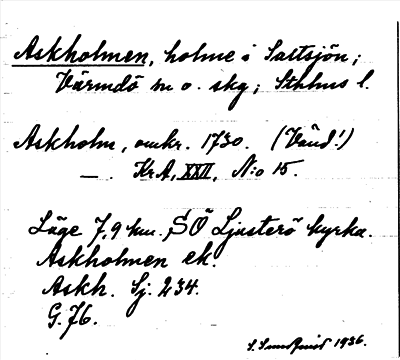 Askholmen, holme i Saltsjön;
Värmdö sn o. skg; Sthlms l.
Askholm, omkr. 1730. (Vänd!)
— . KrA, XXII, N:o 15.
Läge 7,9 km. SÖ Ljusterö kyrka.
Askholmen ek.
Askh. Sj. 234.
G. 76.
S. Sundqvist 1936.